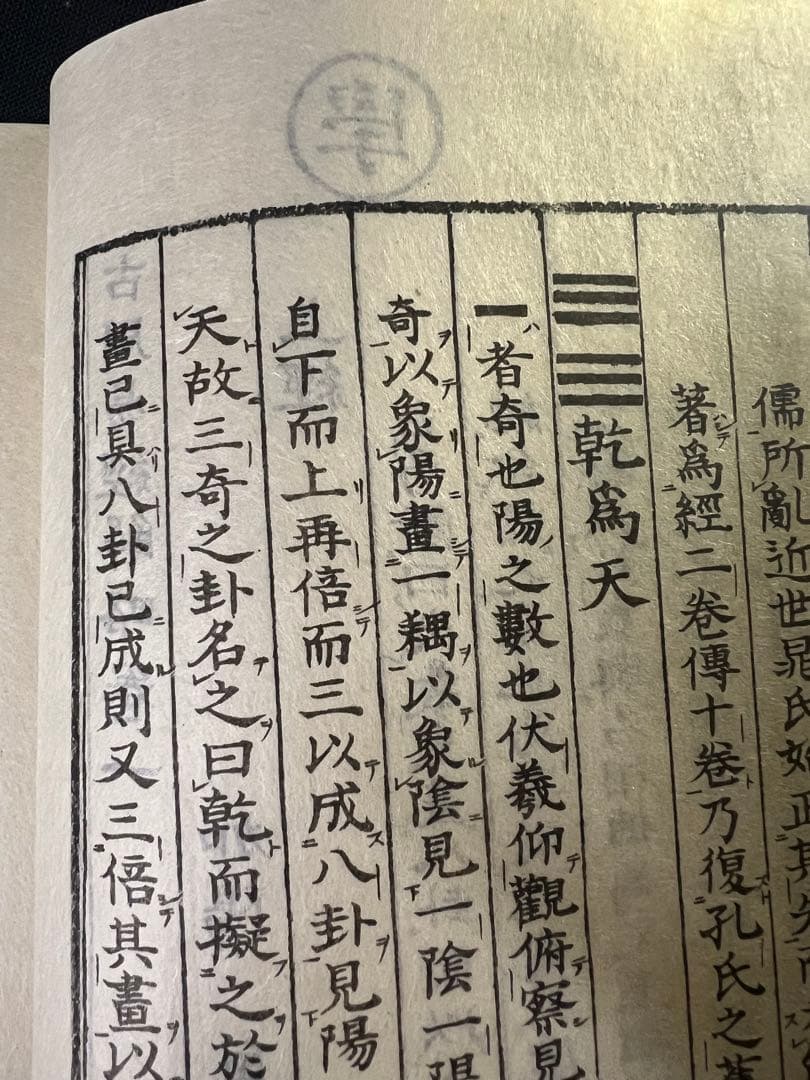 儒所亂近世晁氏始正其失
著爲經二卷傳十卷乃復孔氏之舊
乾爲天
一者奇也陽之數也伏羲仰觀俯察見
奇以象陽畫一耦以象陰見一陰一陽
自下而上再倍而三以成八卦見陽
天故三奇之卦名之曰乾而擬之於
畫已具八卦已成則又三倍其畫以